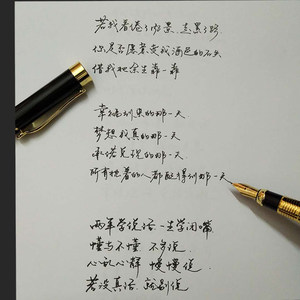 若我看倦了风景 走累了路
你是否愿意变我酒色的石头
借我把余生靠一靠
幸福到来的那一天
梦想成真的那一天
承诺兑现的那一天
所有拖着的人都配得到那一天
两年学说话 一生学闭嘴
懂与不懂 不多说
心乱心静 慢慢说
若没真话 就别说